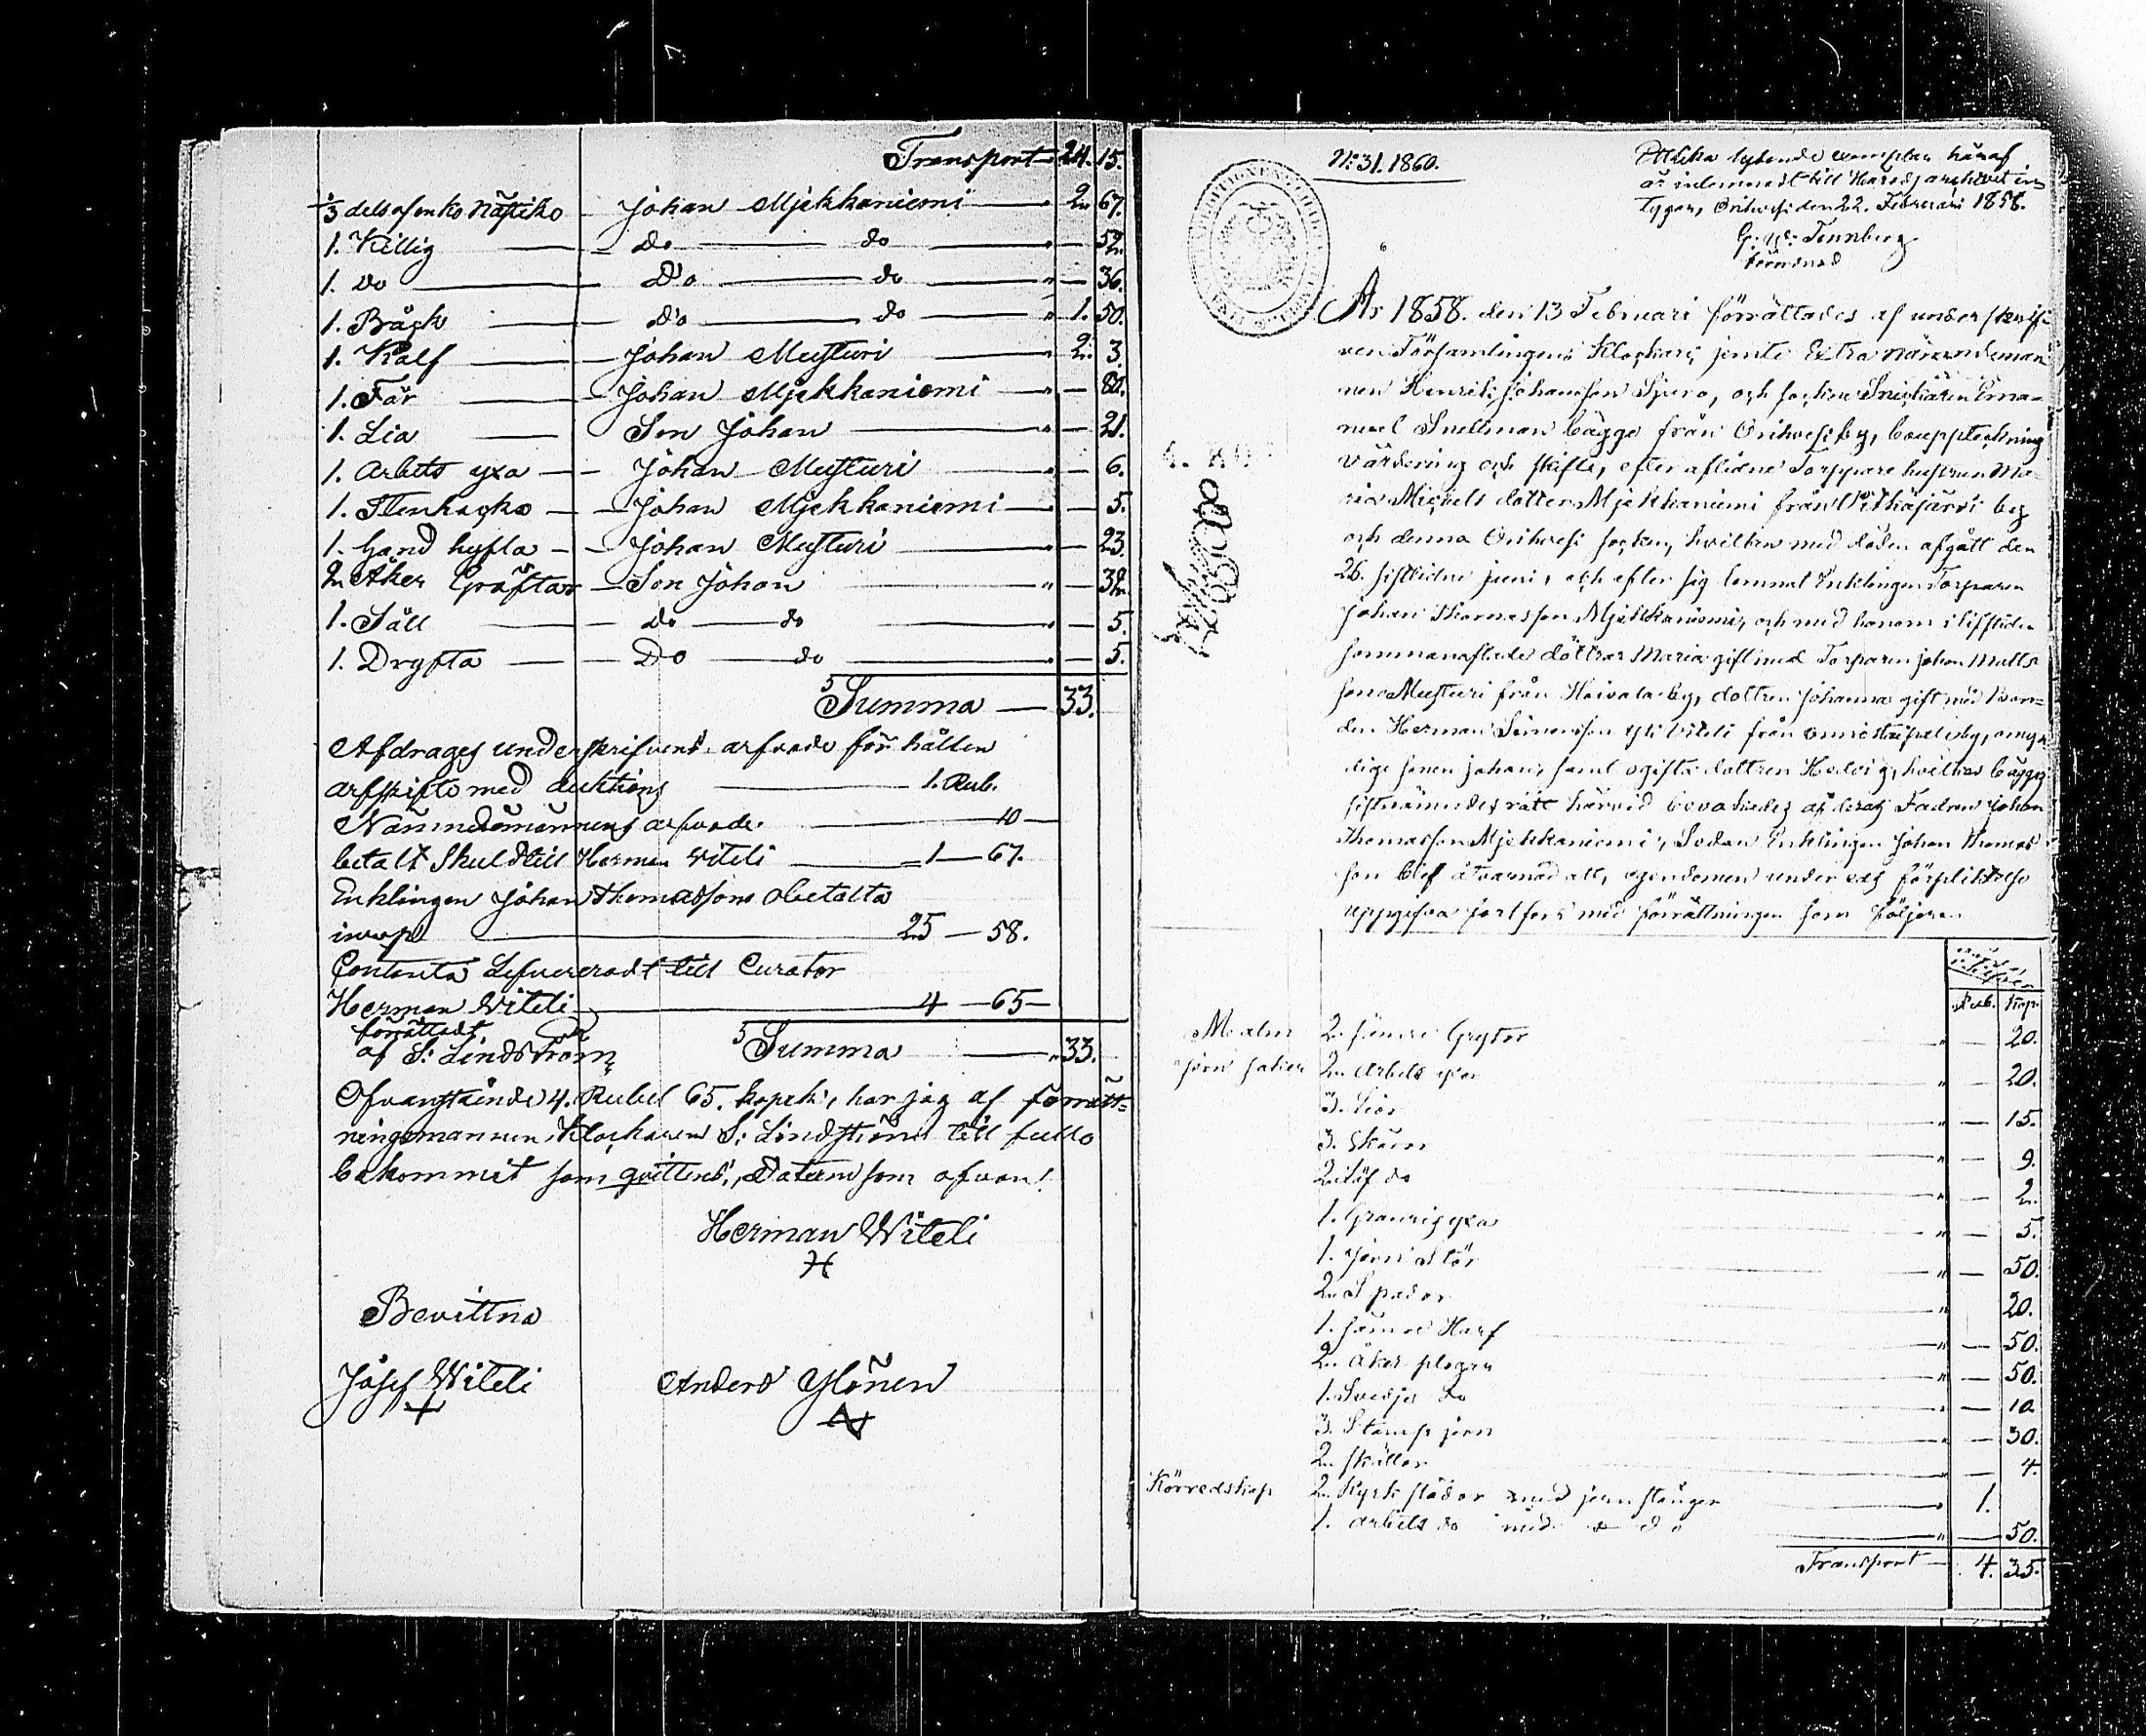 Transport 24. 15.
1/3 dels af en ko Näsiko — Johan Mjekkaniemi — 2. 67.
1. Killig — Do — do — 52.
1. Do — Do — do — 36.
1. Bågk — Do — do — 1. 50.
1. Kalf — Johan Musturi — 2. 3.
1. Får — Johan Mjekkaniemi — 80.
1. Lia — Son Johan — 21.
1. Arbets yxa — Johan Musturi — 6.
1. Stenhacka — Johan Mjekkaniemi — 5.
1. Hand hyfla — Johan Musturi — 23.
2. Åker Gräftor — Son Johan — 32.
1. Såll — do — do — 5.
1. Dryfta — Do — do — 5.
Summa — 33.
Afdrages underskrifvens arfvode för hållen
arfskifte med auktions — 1. Rub.
Nämndemännens arfvode — 40 —
betalt Skuld till Herman Witeli — 1 — 67.
Enklingen Johan Thomassons obetalta
inrop — 25 — 58.
Contanta Lefvereradt till Curator
Herman Witeli — 4 — 65 —
förrättadt
af S: Lindström Summa — 33.
Ofvanstående 4. Rubel 65. kopek, har jag af förrätt=
ningsmannen Klockaren S: Lindström till fullo
bekommit som qvitteras, Datum som ofvan!
Herman Witeli
Bevittna
Josef Witeli Anders Ylönen
No 31. 1860.
lika lydande exemplar häraf
är inlemnadt till Häradsarchivet in
tygar, Orihvesi den 22. Februari 1858.
G: W: Tennberg
förordnad
År 1858. den 13 Februari förrättades af underskrif-
ven Församlingens Klockare, jemte Extra nämndeman
nen Henrik Johansson Spira, och socken Snickaren Ema-
nuel Snellman bägge från Orihvesi by, bouppteckning
värdering och skifte, efter aflidne Torppare hustrun Ma-
ria Michels dotter Mjekkaniemi från Pitkäjärvi by
och denna Orihvesi socken, hvilken med döden afgått den
26. sistlidne juni, och efter sig lemnat Enklingen Torparen
Johan Thomasson Mjekkaniemi, och med honom i lifstiden
sammanaflade döttrar Maria gift med Torparen Johan Matts
son Musturi från Hoivala by, dottren Johanna gift med
den Herman Simonsson Witeli från by, omyn
dige sonen Johan, samt ogifta dottren Hedvig, hvilkas bägges
sistnämndes rätt härvid bevakades af deras Fadren Johan
Thomasson Mjekkaniemi, Sedan Enklingen Johan Thomas
son blef åtvarnad att, egendomen under ed förpliktelse
uppgifva fortfors med förrättningen som följer
Rub. Kop.
Malm 2. Grytor — 20.
jern saker 2. Arbets yxor — 20.
3. Lior — 15.
3. Skäror — 9.
2. Löf do — 2.
1. Granris yxa — 5.
1. Jern Stör — 50.
2. Spador — 20.
1. Harf — 50.
2. Åker plogar — 50.
1. Svedje do — 10
3. Stamp jern — 30.
2. Skällor — 4.
Körredskap 2. Kyrk slädor med jern stänger — 1.
1. arbets do med do — 50.
Transport — 4. 35.